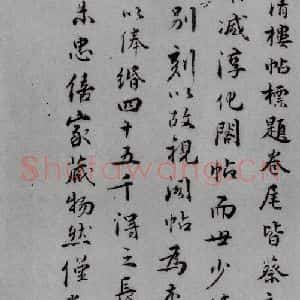 清樓帖標題卷尾皆蔡
减淳化閣帖而世少
别刻以故視閣帖為
以俸緡四十五千得之長
朱忠僖家藏物然僅
Shufawang.CN